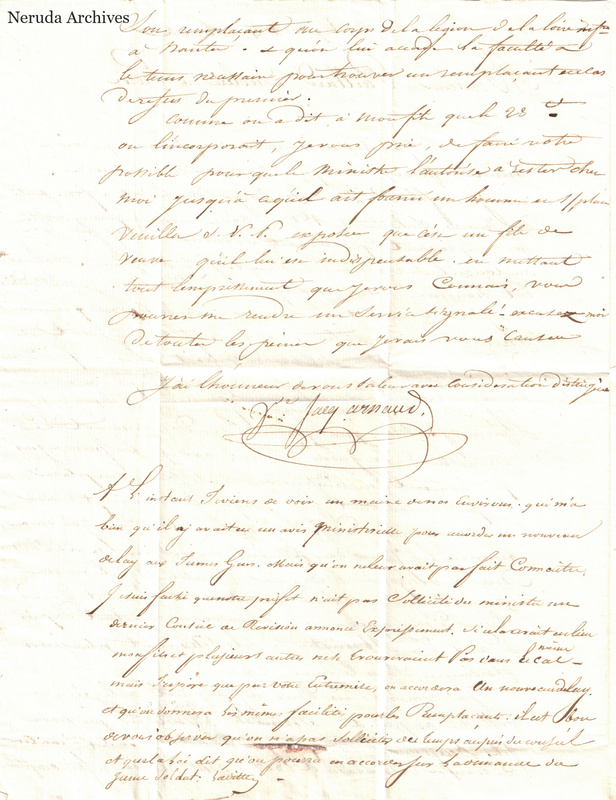 Neruda Archives
Son remplaçant au corps de la légion de la loire infre
à Nantes. et qu'on lui accorde la faculté &
le tems nécessaire pour trouver un remplaçant en cas
de refus du premier.
Comme on a dit à mon fils que le 28
on l'incorporait, je vous prie, de faire votre
possible pour que le Ministre l'autorise à rester chez
moi jusqu'à ce qu'il ait fourni un homme en
Veuillez S. V. P. exposer que c'est un fils de
Veuve qu'il lui est indispensable. en mettant
tout l'empressement que je vous Connais, vous
pourrez me rendre un Service signalé. excusez moi
de toutes les peines que je vais vous Causer
J'ai l'honneur de vous saluer avec Considération distinguée
Ve Jacq arnaud,
L'instant Je viens de voir un maire de nos Environs. qui m'a
bien qu'il y avait eu un avis ministerielle pour accorder un nouveau
delay aux Junes Gens. Mais qu'on ne leur avait pas fait Connoitre,
Je suis faché que notre préfet n'ait pas Sollicité du ministre un
dernier Conseil de Revision annoncé Expressement. Si cela avait eu lieu
mon fils et plusieurs autres ne se trouveraient Pas dans le même Cas —
mais J'espère que par votre Entremise, on accordera Un nouveau delay.
et qu'on donnera les mêmes facilité pour les Remplaçants. il est bon
de vous observer qu'on n'a pas sollicité de temps auprès du conseil
et que la loi dit qu'on pourra en accorder sur la demande du
Jeune Soldat.